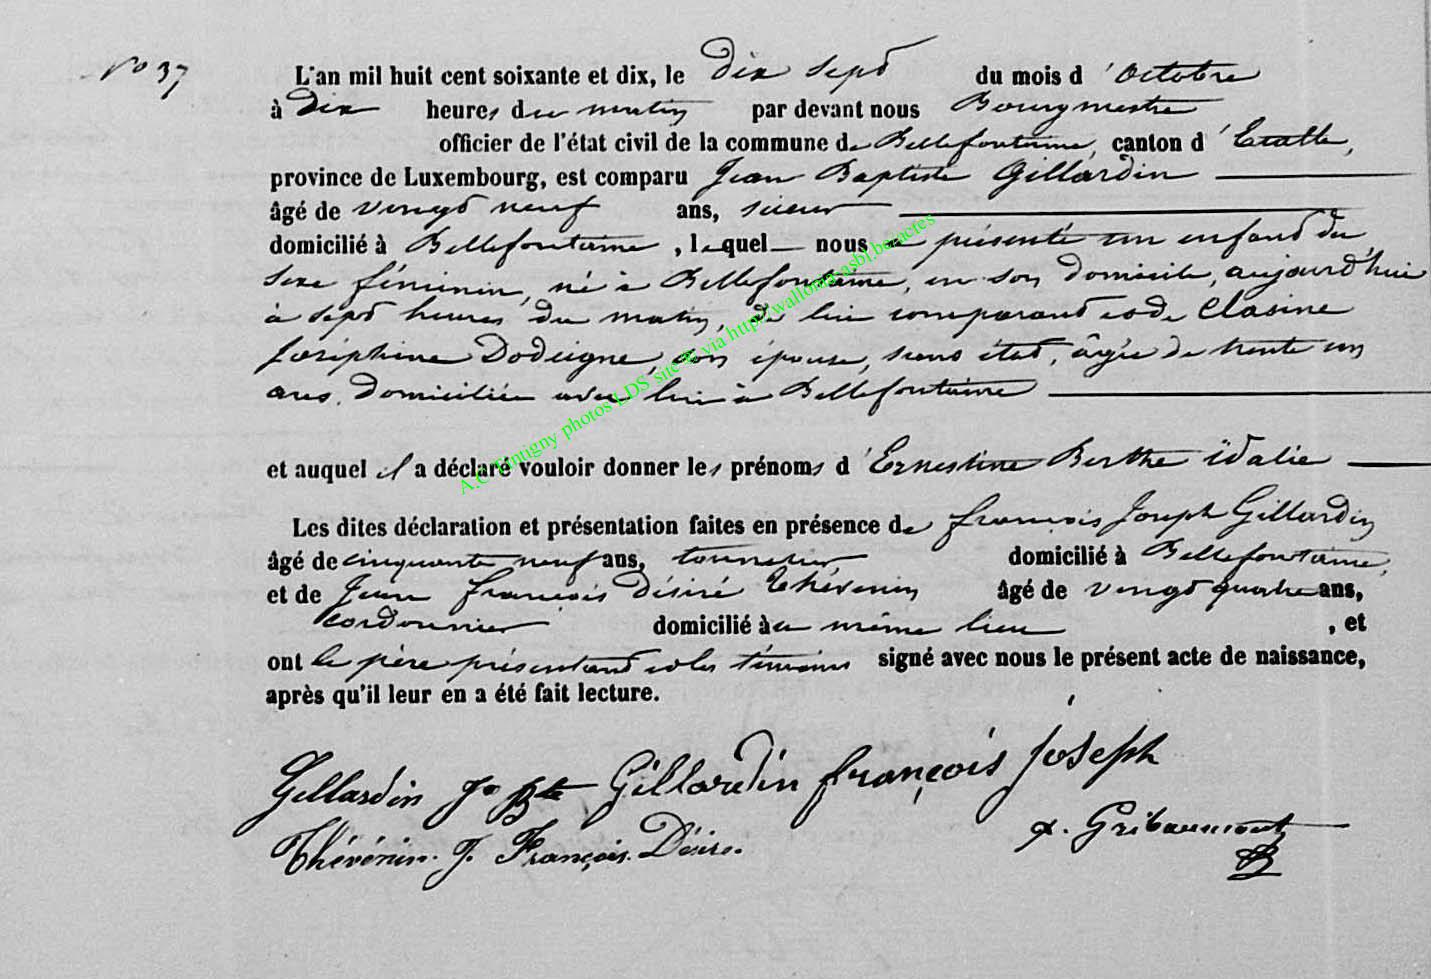 No 37
L'an mil huit cent soixante et dix, le dix sept du mois d'Octobre
à dix heures du matin par devant nous Bourgmestre
officier de l'état civil de la commune de Bellefontaine, canton d'Etalle,
province de Luxembourg, est comparu Jean Baptiste Gillardin
âgé de vingt neuf ans, scieur
domicilié à Bellefontaine, lequel nous a présenté un enfant du
sexe féminin, né à Bellefontaine, en son domicile, aujourd'hui
à sept heures du matin, de lui comparant et de Clasine
Joséphine Dodeigne, son épouse, sans état, âgée de trente un
ans, domiciliée avec lui à Bellefontaine
et auquel il a déclaré vouloir donner les prénoms d'Ernestine Berthe ïdalie
Les dites déclaration et présentation faites en présence de françois Joseph Gillardin
âgé de cinquante neuf ans, tonnelier domicilié à Bellefontaine,
et de Jean françois Désiré Thévenin âgé de vingt quatre ans,
cordonnier domicilié au même lieu, et
ont le père présentant et les témoins signé avec nous le présent acte de naissance,
après qu'il leur en a été fait lecture.
Gillardin Jn Bte Gillardin françois joseph
Thévénin. J. François. Désiré.
x. Gribaumont
A.C Tintigny photos LDS site © via http://wallonia-asbl.be/actes